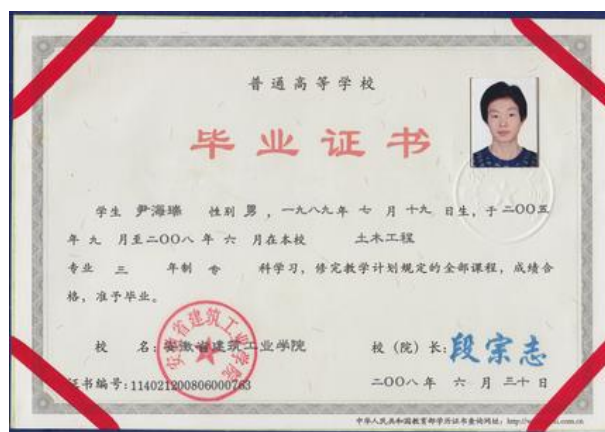 普通高等学校
毕业证书
学生 尹海瑞 性别 男 ，一九八九年 七 月 十九 日生，于 二〇〇五
年 九 月至二〇〇八 年 六 月在本校 土木工程
专业 三 年制 专 科学习，修完教学计划规定的全部课程，成绩合
格，准予毕业。
校 名：安徽省建筑工业学院
校（院）长：段宗志
证书编号：114021200806000763
二〇〇八年 六 月 三十 日
安徽省建筑工业学院
中华人民共和国教育部学历证书查询网址：